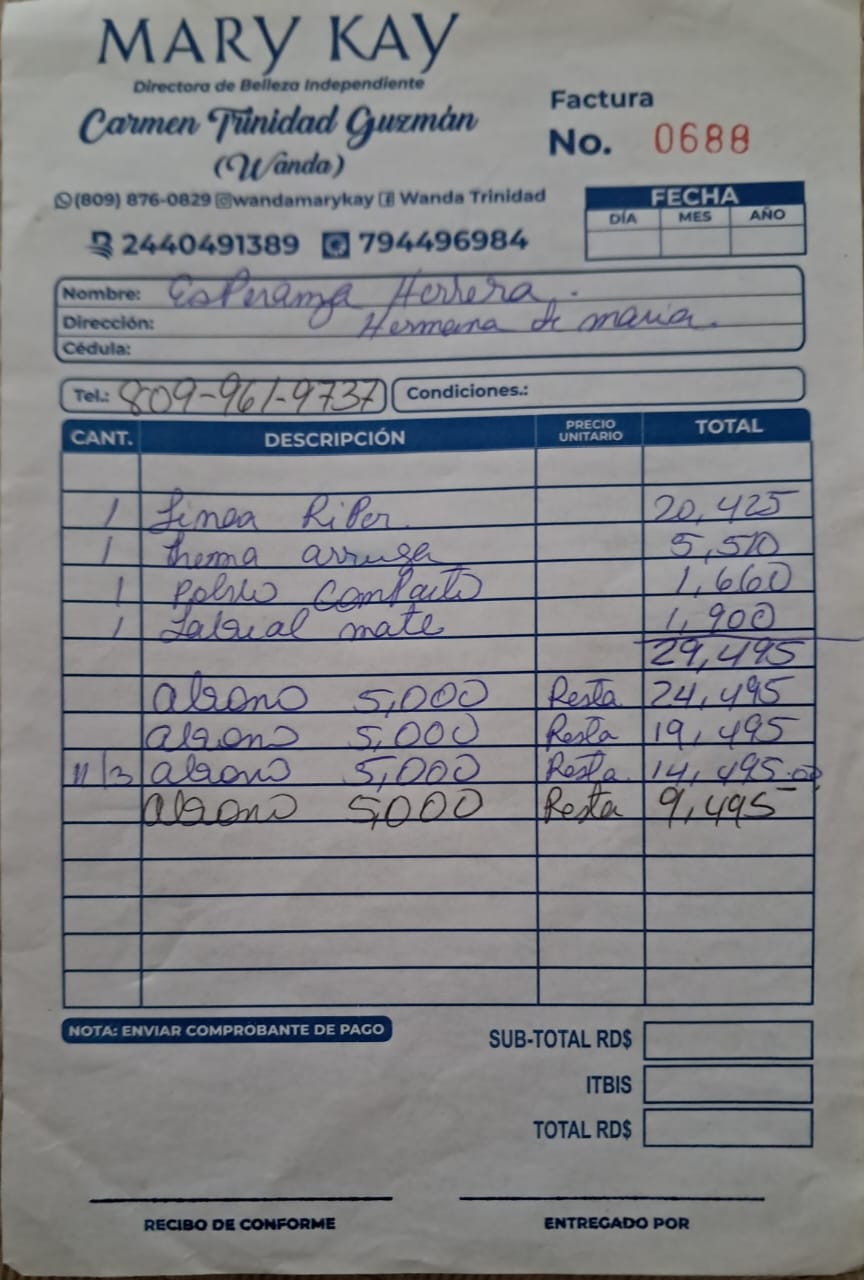 MARY KAY
Directora de Belleza Independiente
Carmen Trinidad Guzmán
(Wanda)
Factura
No. 0688
(809) 876-0829 wandamarykay Wanda Trinidad
2440491389 794496984
FECHA
DÍA MES AÑO
Nombre: Esperanza Herrera.
Dirección: Hermana de maria.
Cédula:
Tel.: 809-961-9737 Condiciones.:
CANT. DESCRIPCIÓN PRECIO UNITARIO TOTAL
1 Linea RiPer 20,425
1 thema arruga 5,510
1 Polvo Compacto 1,660
1 Labial mate 1,900
29,495
abono 5,000 Resta 24,495
abono 5,000 Resta 19,495
11/3 abono 5,000 Resta 14,495.00
abono 5,000 Resta 9,495
NOTA: ENVIAR COMPROBANTE DE PAGO
SUB-TOTAL RD$
ITBIS
TOTAL RD$
RECIBO DE CONFORME
ENTREGADO POR